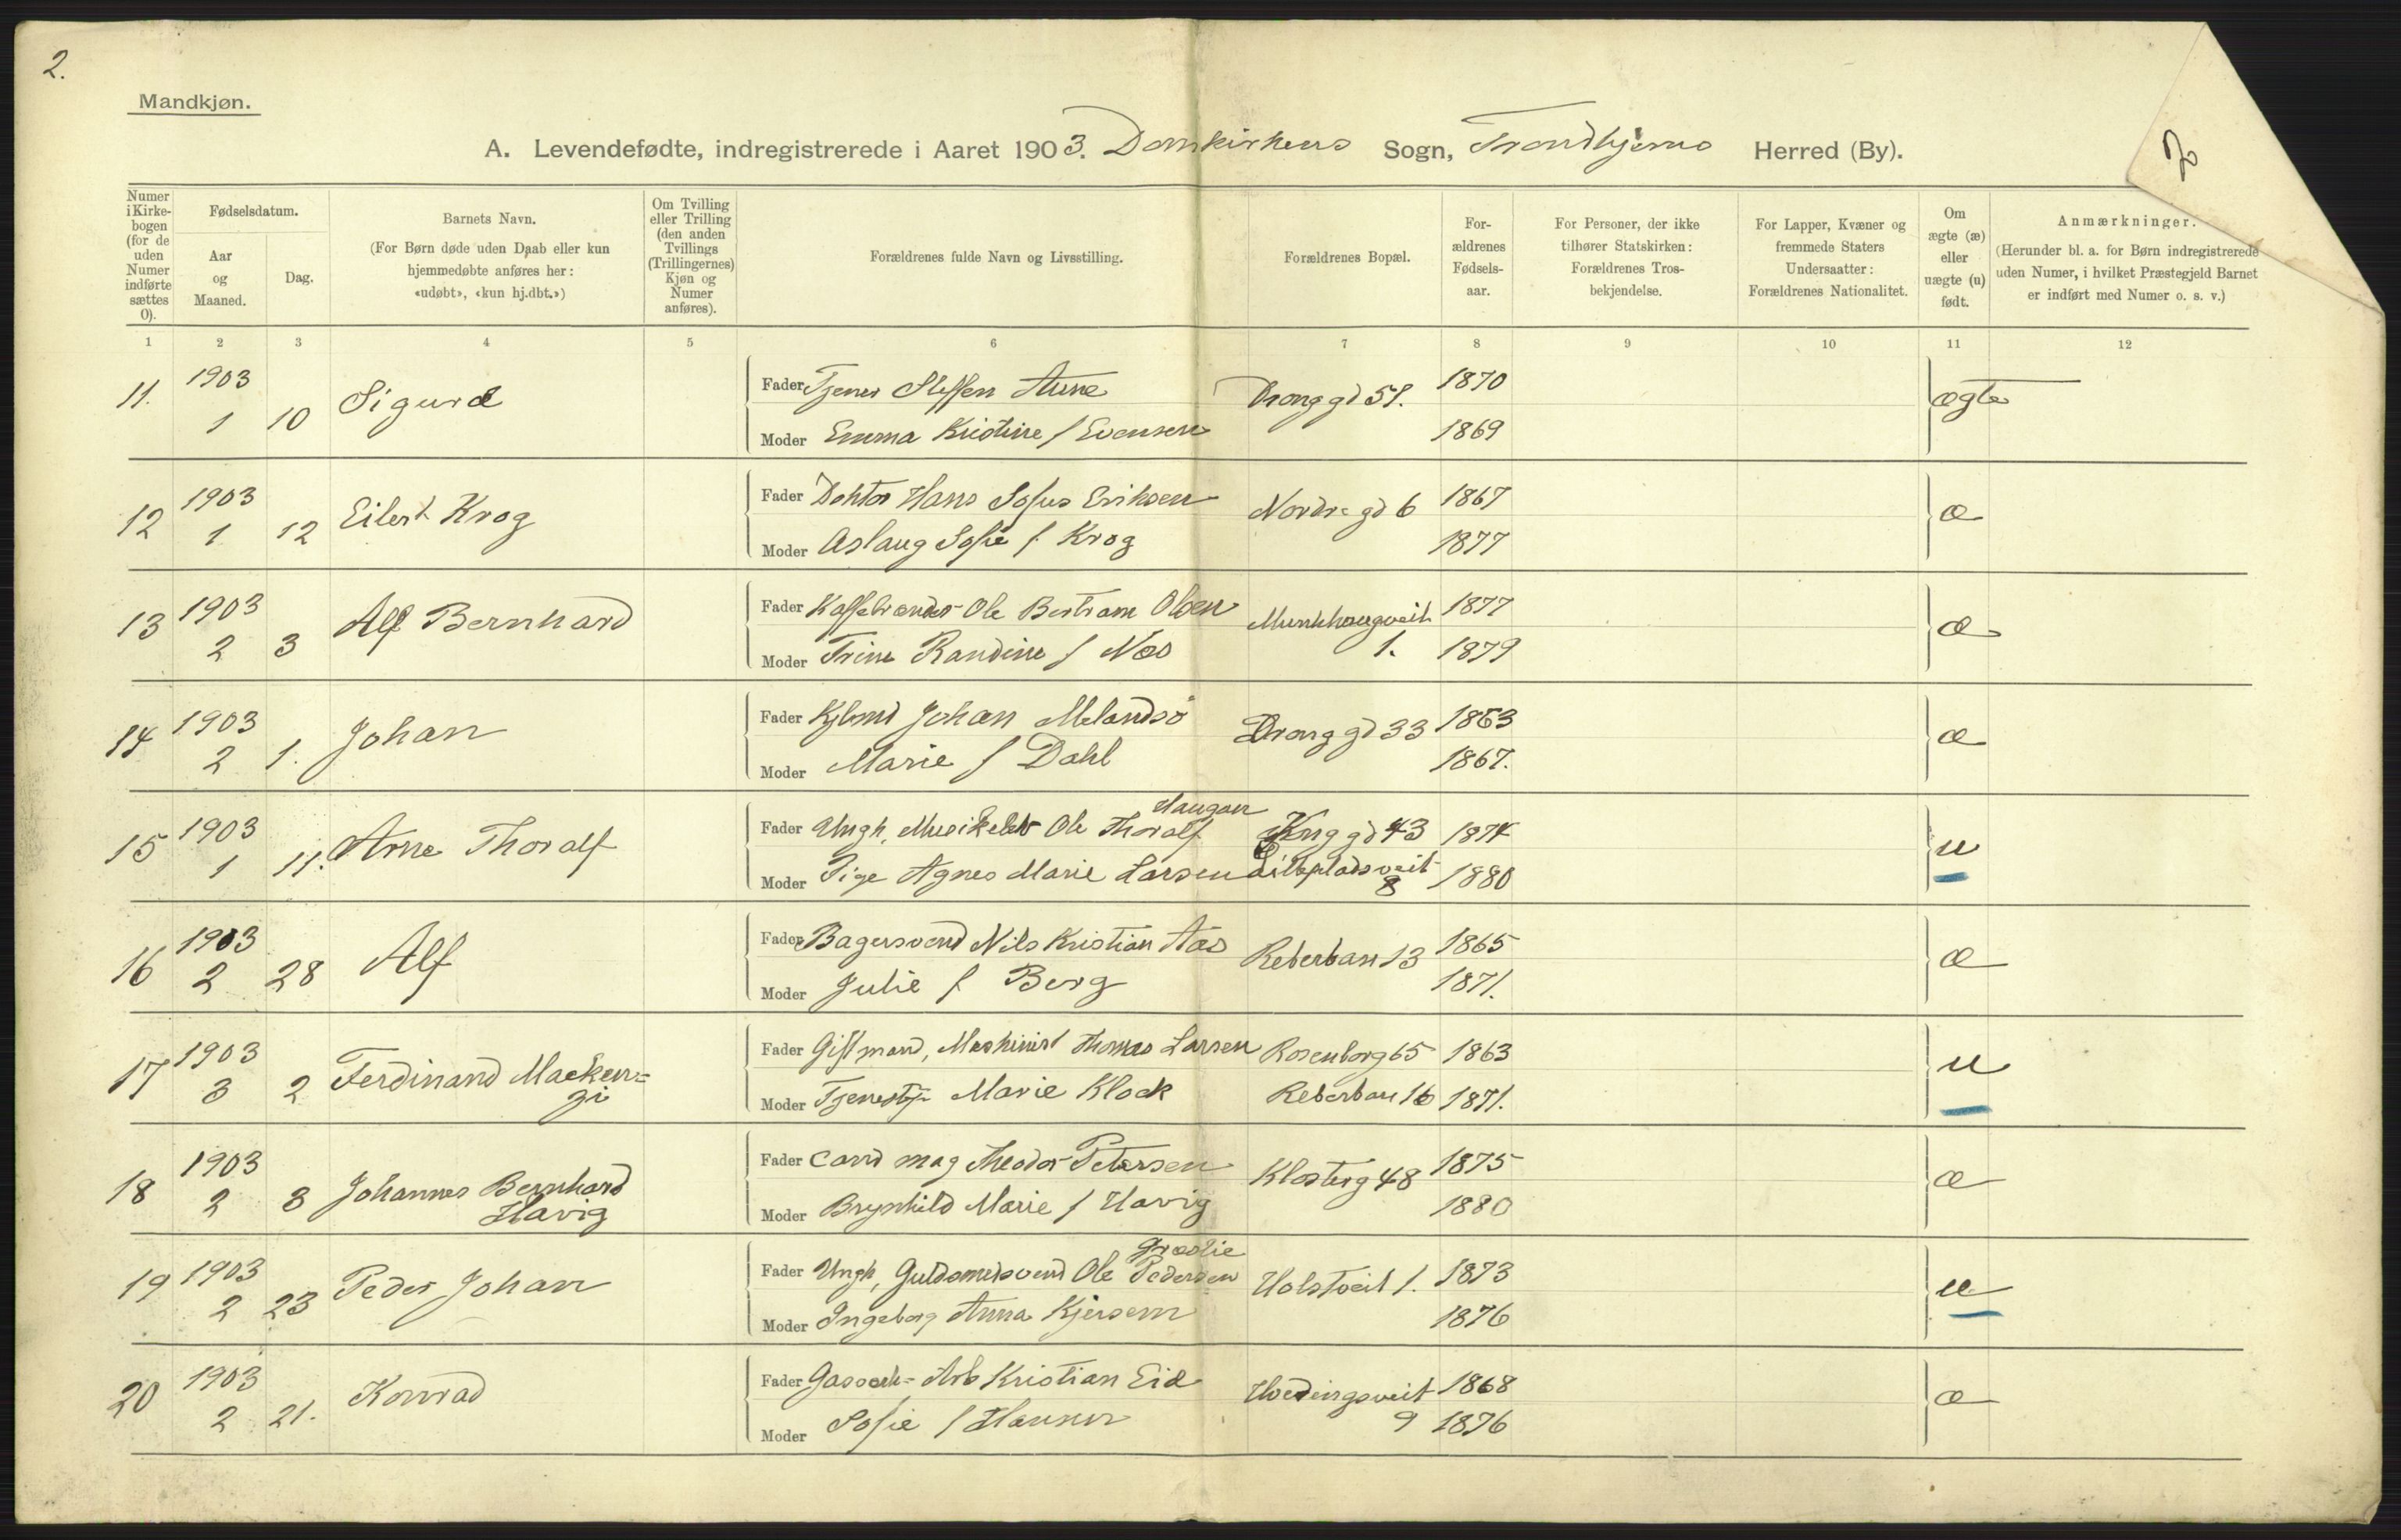 2.
Mandkjøn.
A. Levendefødte, indregistrerede i Aaret 1903. Domkirkens Sogn, Trondhjems Herred (By).
Numer i Kirkebogen (for de uden Numer indførte sættes 0).
Fødselsdatum.
Aar og Maaned.
Dag.
Barnets Navn.
(For Børn døde uden Daab eller kun hjemmedøbte anføres her: «udøbt», «kun hj.dbt.»)
Om Tvilling eller Trilling (den anden Tvillings (Trillingernes) Kjøn og Numer anføres).
Forældrenes fulde Navn og Livsstilling.
Forældrenes Bopæl.
Forældrenes Fødselsaar.
For Personer, der ikke tilhører Statskirken: Forældrenes Trosbekjendelse.
For Lapper, Kvæner og fremmede Staters Undersaatter: Forældrenes Nationalitet.
Om ægte (æ) eller uægte (u) født.
Anmærkninger.
(Herunder bl. a. for Børn indregistrerede uden Numer, i hvilket Præstegjeld Barnet er indført med Numer o. s. v.)
1 2 3 4 5 6 7 8 9 10 11 12
11. 1903 Fader Tjener Steffen Aune Drong gd 51. 1870 ægte
1 10 Sigurd Moder Emma Kristine f Evensen 1869
12 1903 Eilert Krog Fader Doktor Hans Sofus Eriksen Nordre gd 6 1867 æ
1 12 Moder Aslaug Sofie f. Krog 1877
13 1903 Alf Bernhard Fader Kaffebrænder Ole Bertram Olsen Munkhaugveit 1877 æ
2 3 Moder Trine Randine f Næs 1. 1879
14 1903 Johan Fader Kjbmd Johan Melandsö Drong gd 33 1863 æ
2 1. Moder Marie f Dahl 1867.
Haugan
15 1903 Arne Thoralf Fader Ungk. Musikelev Ole Thoralf Kng gd 43 1874 u
1 11. Moder Pige Agnes Marie Larsen Ilevpladsveit 8 1880
16 1903 Alf Fader Bagersvend Nils Kristian Aas Reberban 13 1865 æ
2 28 Moder Julie f. Berg 1871.
17 1903 Ferdinand Macken= Fader Gift mand, Maskinist Thomas Larsen Rosenborg 65 1863 u
3 2 zi Moder Tjenestp. Marie Klock Reberban 16 1871.
18 1903 Johannes Bernhard Fader cand mag Theodor Petersen Klosterg 48 1875 æ
2 3 Havig Moder Brynhild Marie f Havig 1880
Græslie
19 1903 Peder Johan Fader Ungk, Guldsmedsvend Ole Pedersen Holstveit 1. 1873 u
2 23 Moder Ingeborg Anna Kjersem 1876
20 1903 Konrad Fader Gasverk= Arb Kristian Eid Hvedingsveit 1868 æ
2 21. Moder Sofie f Hansen 9 1876